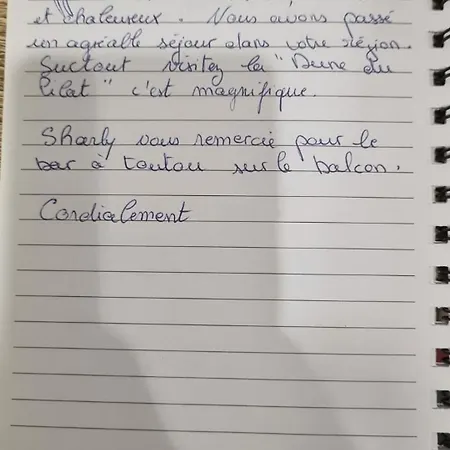 et chaleureux. Nous avons passé
un agréable séjour dans votre région.
Surtout visitez la "Dune du
Pilat" c'est magnifique.
Sharly vous remercie pour le
bar à toutou sur le balcon.
Cordialement